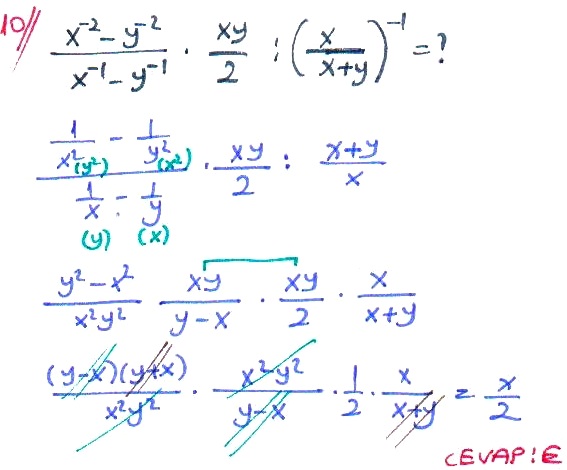 10// (x⁻² - y⁻²)/(x⁻¹ - y⁻¹) · xy/2 : (x/(x+y))⁻¹ = ?
(1/x² (y²) - 1/y² (x²))/(1/x (y) - 1/y (x)) · xy/2 : (x+y)/x
(y² - x²)/(x²y²) xy/(y-x) · xy/2 · x/(x+y)
((y-x)(y+x))/(x²y²) · (x²y²)/(y-x) · 1/2 · x/(x+y) = x/2
CEVAP:E